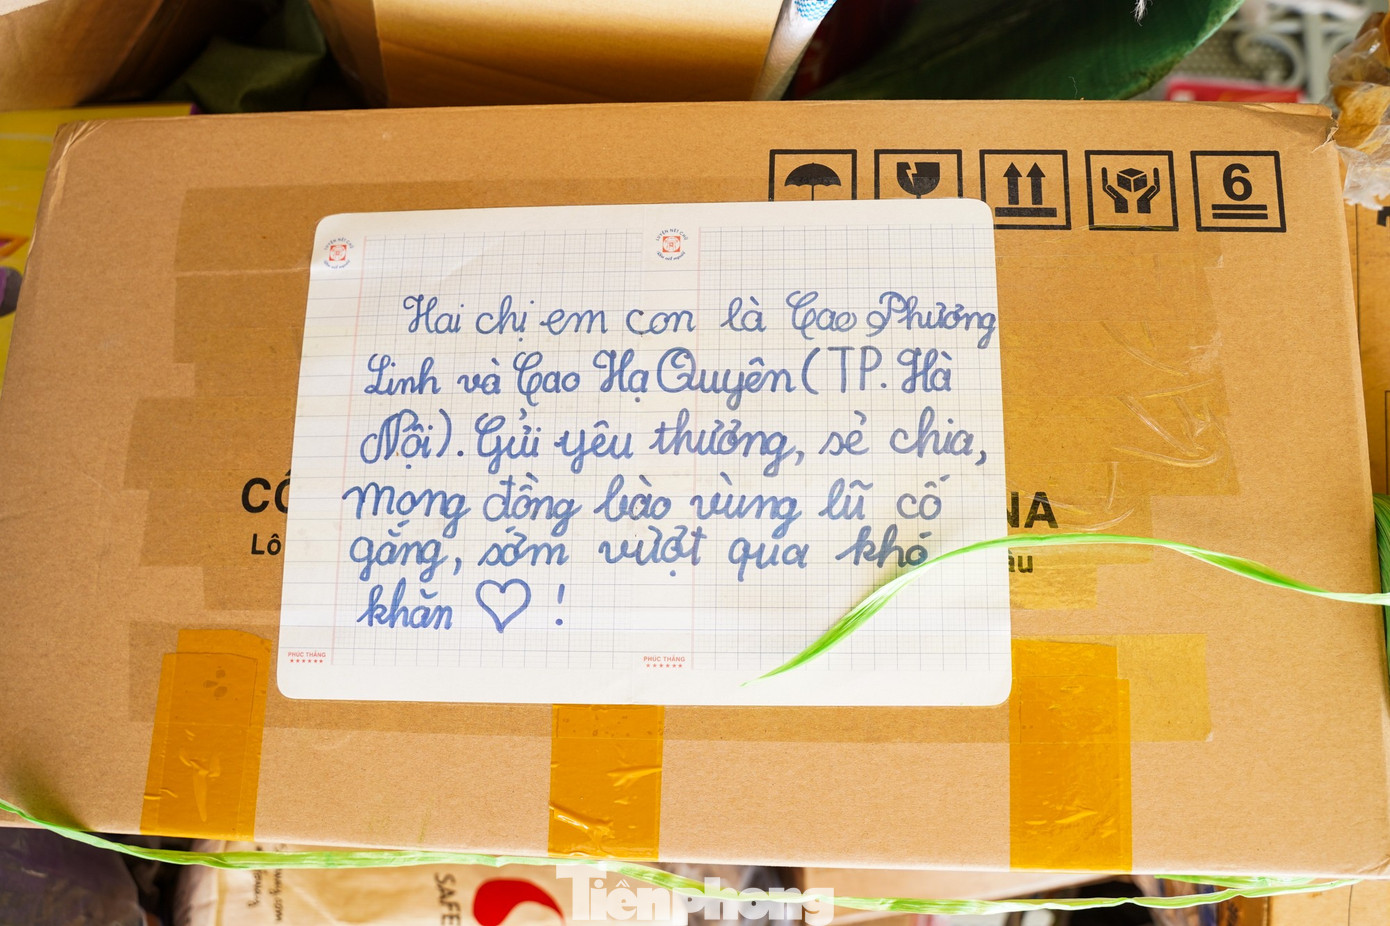 6
LUYỆN NÉT CHỮ
LUYỆN NÉT CHỮ
Hai chị em con là Cao Phương
Linh và Cao Hạ Quyên (TP. Hà
Nội). Gửi yêu thương, sẻ chia,
mong đồng bào vùng lũ cố
gắng, sớm vượt qua khó
khăn ♡ !
PHÚC THẮNG
PHÚC THẮNG
CÔ
NA
Lô
ầu
SAFE
Tiền phong